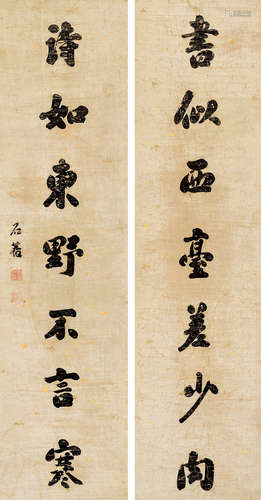 書似西臺差少肉
詩如東野不言寒
石菴